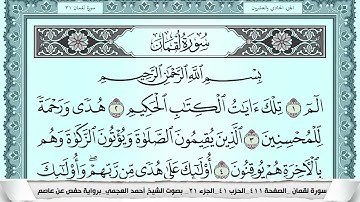 الجزء الحادي والعشرون
سورة لقمان ٣١
سُورَةُ لُقْمَانَ
بِسْمِ اللَّهِ الرَّحْمَٰنِ الرَّحِيمِ
الٓمٓ ١ تِلْكَ ءَايَٰتُ ٱلْكِتَٰبِ ٱلْحَكِيمِ ٢ هُدًى وَرَحْمَةً
لِّلْمُحْسِنِينَ ٣ ٱلَّذِينَ يُقِيمُونَ ٱلصَّلَوٰةَ وَيُؤْتُونَ ٱلزَّكَوٰةَ وَهُم
بِٱلْءَاخِرَةِ هُمْ يُوقِنُونَ ٤ أُو۟لَٰٓئِكَ عَلَىٰ هُدًى مِّن رَّبِّهِمْ ۖ وَأُو۟لَٰٓئِكَ
سورة لقمان _ الصفحة ٤١١ _ الحزب ٤١ _ الجزء ٢١ _ بصوت الشيخ أحمد العجمي _ برواية حفص عن عاصم